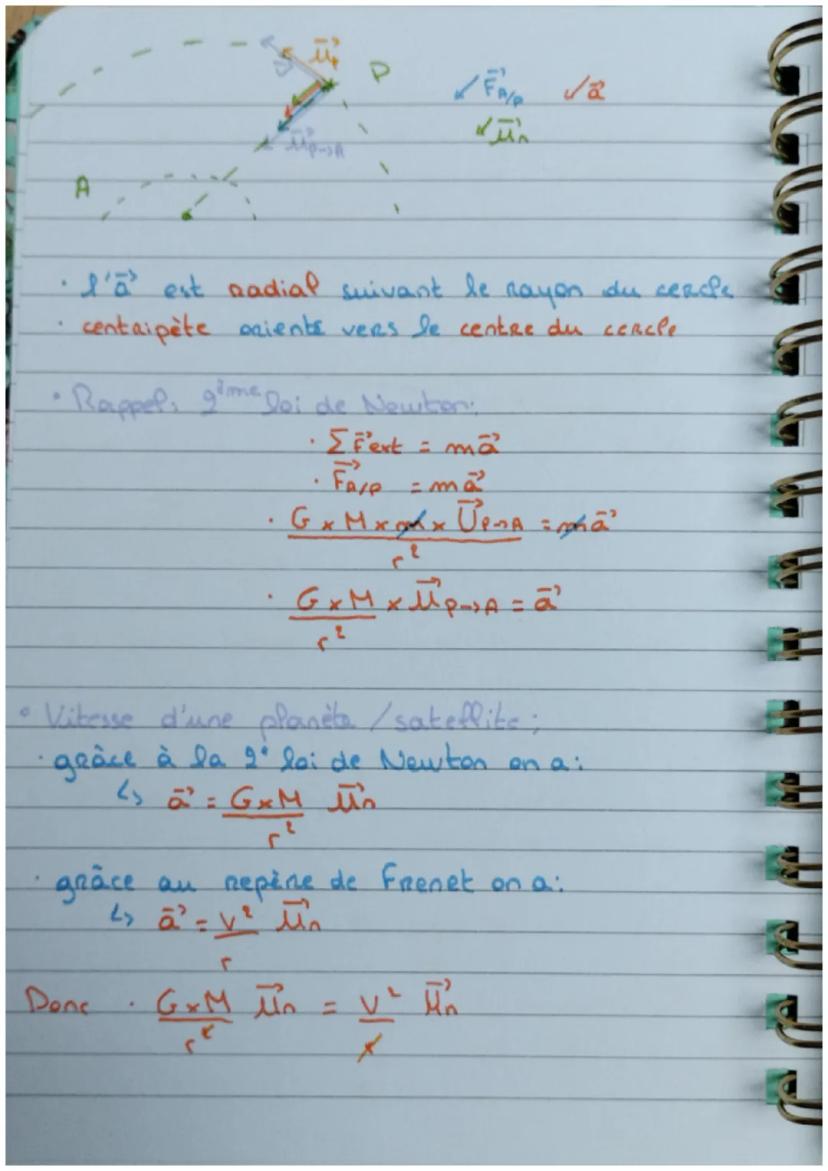 μ⃗t
v⃗
P
F⃗A/P
a⃗
μ⃗n
μ⃗P→A
A
· l'a⃗ est radial suivant le rayon du cercle
· centripète orienté vers le centre du cercle
· Rappel, 2ième loi de Newton:
· ΣF⃗ext = ma⃗
· F⃗A/P = ma⃗
· G x M x m x U⃗P→A / r² = ma⃗
· G x M / r² x μ⃗P→A = a⃗
• Vitesse d'une planète / satellite;
· grâce à la 2e loi de Newton on a:
↳ a⃗ = G x M / r² μ⃗n
· grâce au repère de Frenet on a:
↳ a⃗ = V² / r μ⃗n
Donc · G x M / r² μ⃗n = V² / r μ⃗n